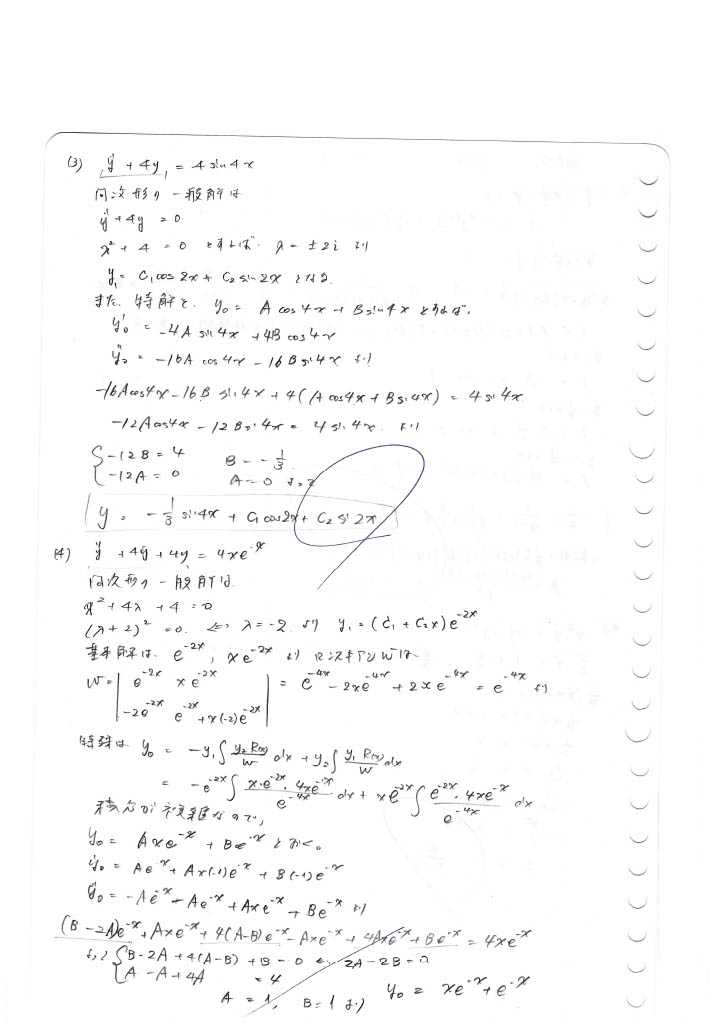 (3) ÿ + 4y = 4 sin 4x
同次形の一般解は
ÿ + 4y = 0
λ² + 4 = 0 とすれば λ = ±2i より
y₁ = C₁ cos 2x + C₂ sin 2x となる.
また, 特解を y₀ = A cos 4x + B sin 4x とすれば,
y₀' = -4A sin 4x + 4B cos 4x
ÿ₀ = -16A cos 4x - 16B sin 4x より
-16A cos 4x - 16B sin 4x + 4(A cos 4x + B sin 4x) = 4 sin 4x
-12A cos 4x - 12B sin 4x = 4 sin 4x より
{ -12B = 4 B = -1/3
-12A = 0 A = 0 よって
y = -1/3 sin 4x + C₁ cos 2x + C₂ sin 2x
(4) ÿ + 4ẏ + 4y = 4xe^{-x}
同次形の一般解は
λ² + 4λ + 4 = 0
(λ+2)² = 0 ⇔ λ = -2 より y₁ = (C₁ + C₂x)e^{-2x}
基本解は e^{-2x}, xe^{-2x} より ロンスキアン W は
W = | e^{-2x} xe^{-2x} | = e^{-4x} - 2xe^{-4x} + 2xe^{-4x} = e^{-4x} より
| -2e^{-2x} e^{-2x} + x(-2)e^{-2x} |
特殊は y₀ = -y₁ ∫ y₂R(x)/W dx + y₂ ∫ y₁R(x)/W dx
= -e^{-2x} ∫ x·e^{-2x}·4xe^{-x}/e^{-4x} dx + xe^{-2x} ∫ e^{-2x}·4xe^{-x}/e^{-4x} dx
積分が複雑なので,
y₀ = Axe^{-x} + Be^{-x} とおく。
ẏ₀ = Ae^{-x} + Ax(-1)e^{-x} + B(-1)e^{-x}
ÿ₀ = -Ae^{-x} - Ae^{-x} + Axe^{-x} + Be^{-x} より
(B - 2A)e^{-x} + Axe^{-x} + 4(A-B)e^{-x} - Axe^{-x} + 4Axe^{-x} + Be^{-x} = 4xe^{-x}
よって { B - 2A + 4(A-B) + B = 0 ⇔ 2A - 2B = 0
A - A + 4A = 4
A = 1, B = 1 より y₀ = xe^{-x} + e^{-x}